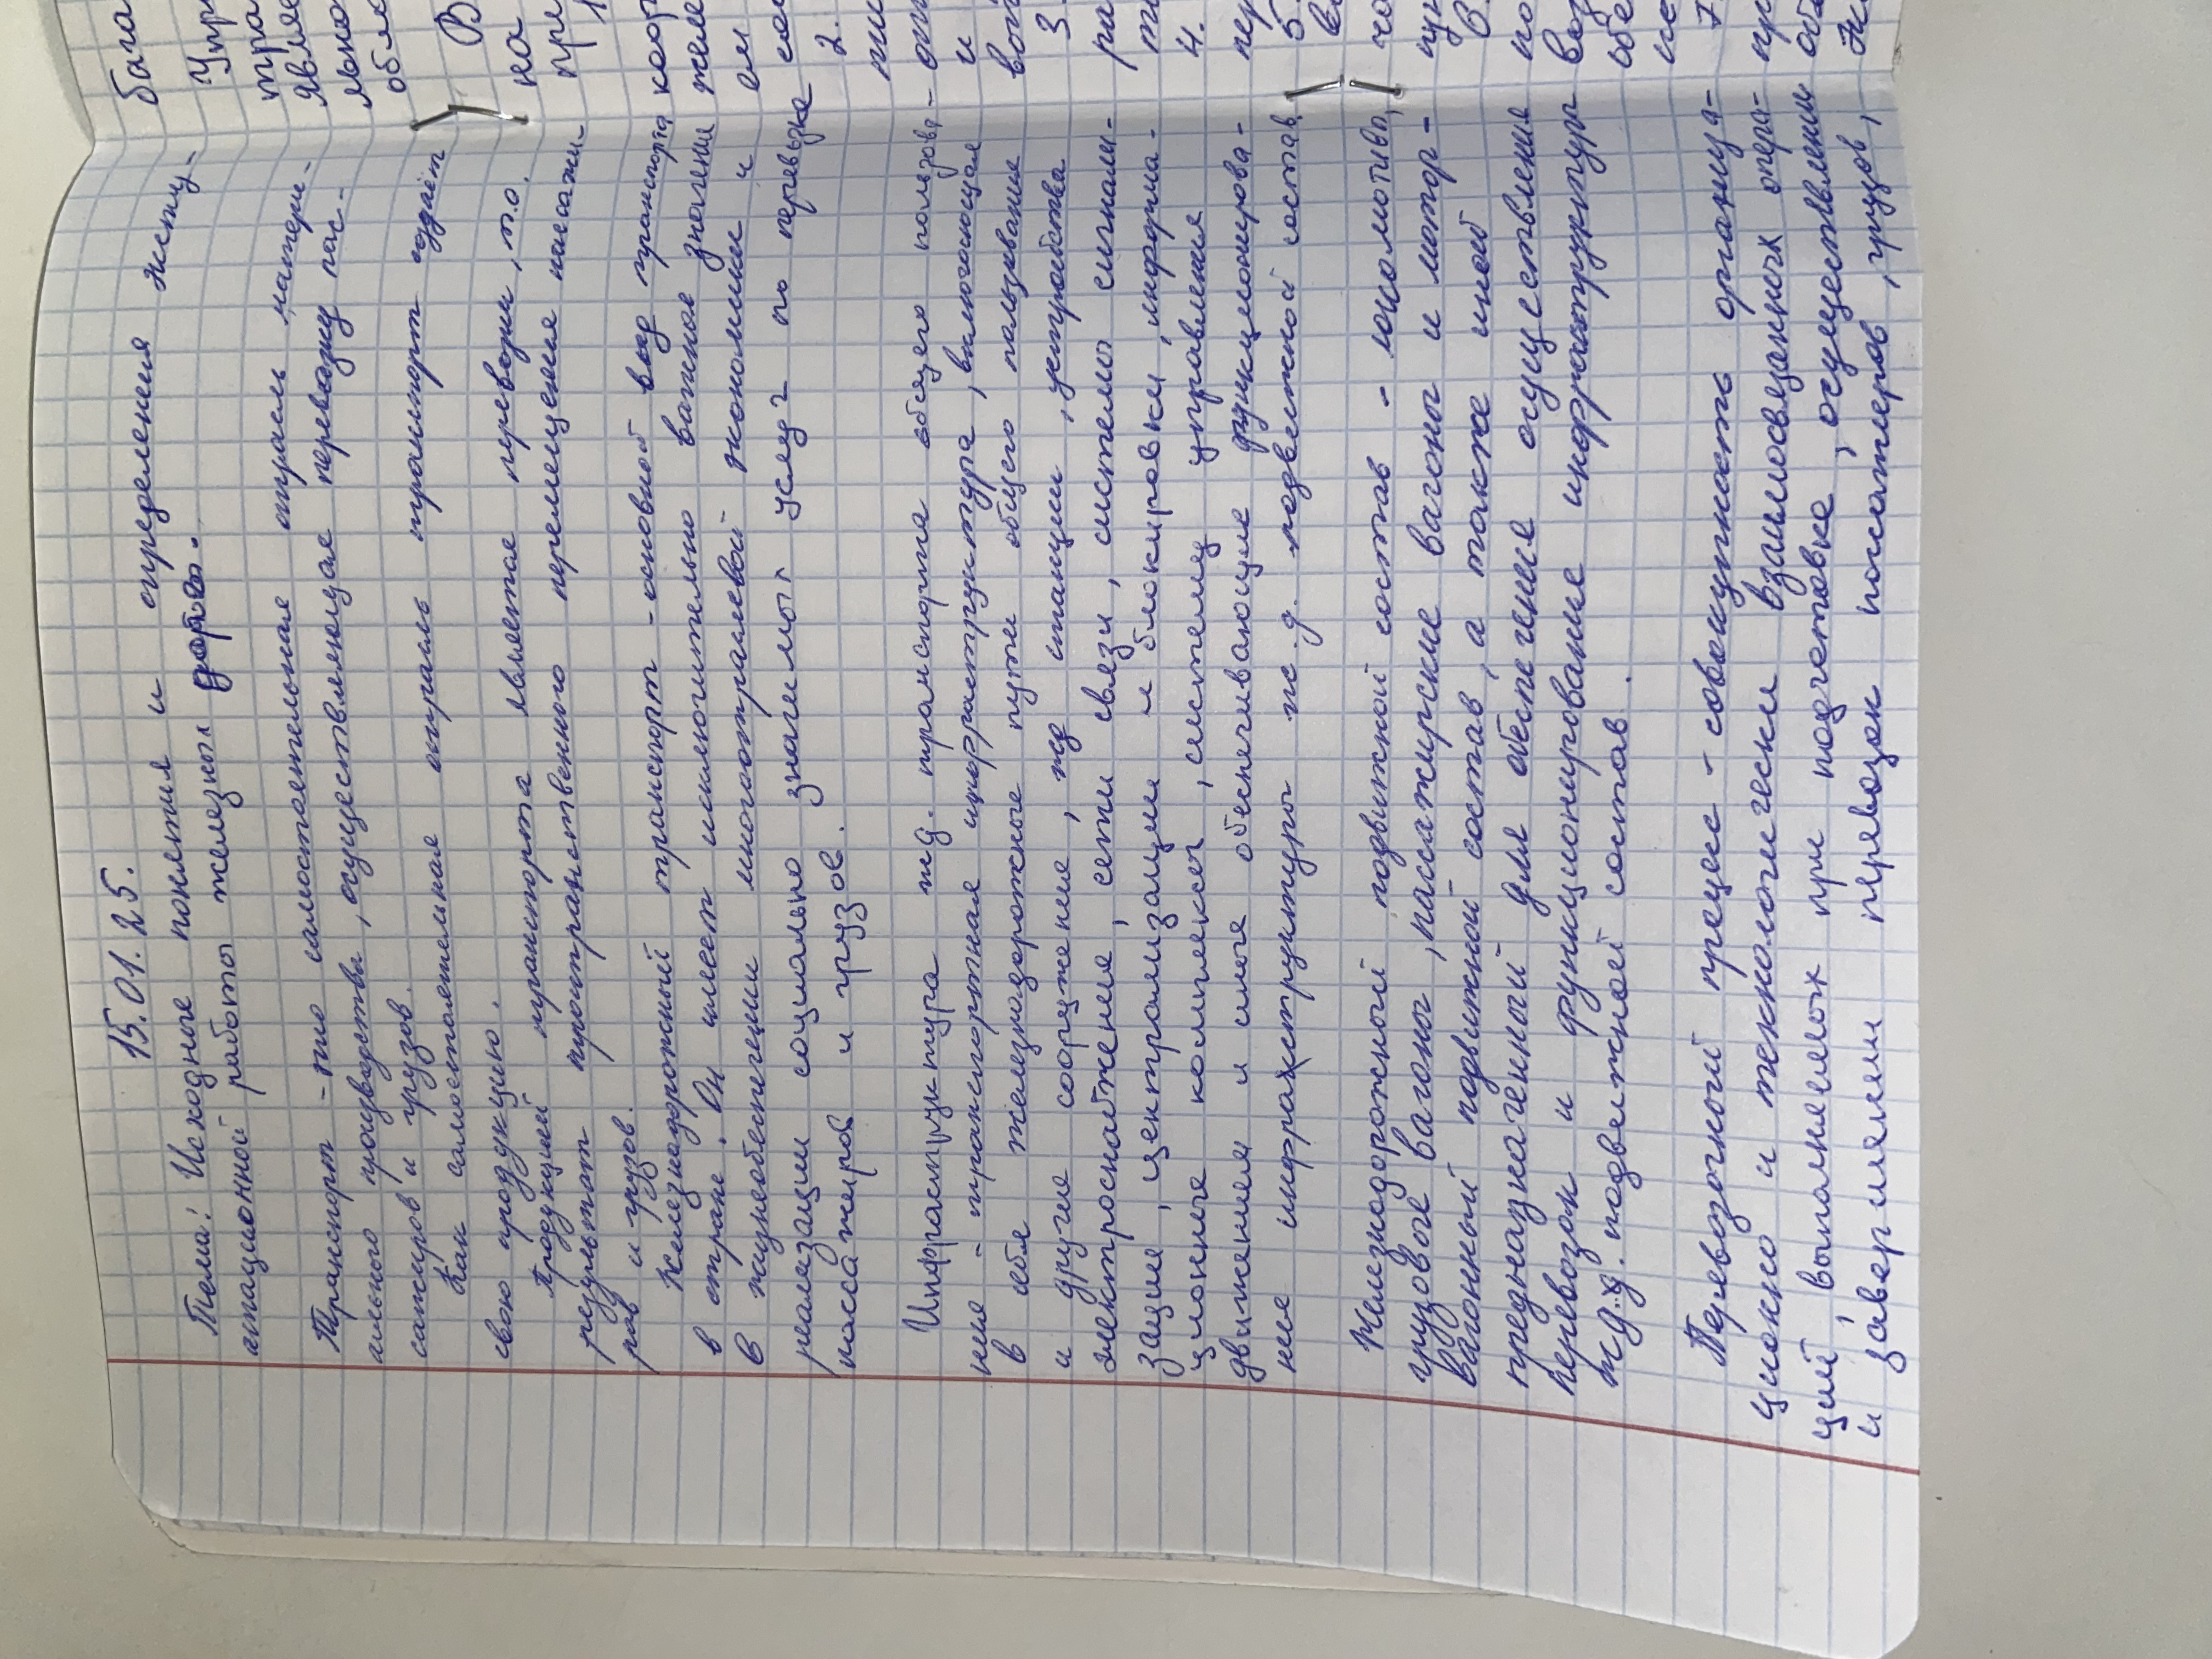 15.01.25.
Тема: Исходные понятия и определения эксплу-
атационной работы железных дорог.
Транспорт - это самостоятельная отрасль матери-
ального производства, осуществляющая перевозку пас-
сажиров и грузов.
Как самостоятельная отрасль транспорт создаёт
свою продукцию.
Продукцией транспорта является перевозки, т.о.
результат пространственного перемещения пассажи-
ров и грузов.
Железнодорожный транспорт - основной вид транспорта
в стране. Он имеет исключительно важное значение
в жизнеобеспечении многоотраслевой экономики и
реализации социально значимых услуг по перевозке
пассажиров и грузов.
Инфраструктура жд. транспорта общего пользова-
ния - транспортная инфраструктура, включающая
в себя железнодорожные пути общего пользование
и другие сооружение, жд станции, устройства
электроснабжение, сети связи, системы сигнали-
зации, централизации и блокировки, информа-
ционные комплексы, систему управления
движением и иные обеспечивающие функционирова-
ние инфраструктуры ж.д. подвижной состав.
Железнодорожный подвижной состав - локомотивы,
грузовые вагоны, пассажирские вагоны и мотор-
вагонный подвижной состав, а также иной
предназначенный для обеспечение осуществления
перевозок и функционирование инфраструктуры
ж.д. подвижной состав.
Перевозочный процесс - совокупность организа-
ционно и технологически взаимосвязанных опера-
ций, выполняемых при подготовке, осуществлении
и завершении перевозок пассажиров, грузов,
бага
Упр
тра
явля
обла
В
на
при
1
2.
3.
4.
5.
6.
7.